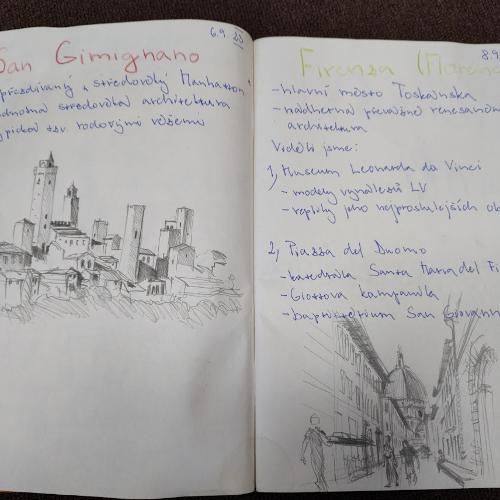 6.9. 23
San Gimignano
přezdívaný „středověký Manhattan"
středověká architektura
typická tzv. rodovými věžemi
8.9
Firenza (Florenc
- hlavní město Toskánska
- nádherná převážně renesanční
architektura
Viděli jsme:
1, Museum Leonarda da Vinci
- modely vynálezů LV
- repliky jeho nejproslulejších ob
2, Piazza del Duomo
- katedrála Santa Maria del Fi
- Giottova kampanila
- baptisterium San Giovanni